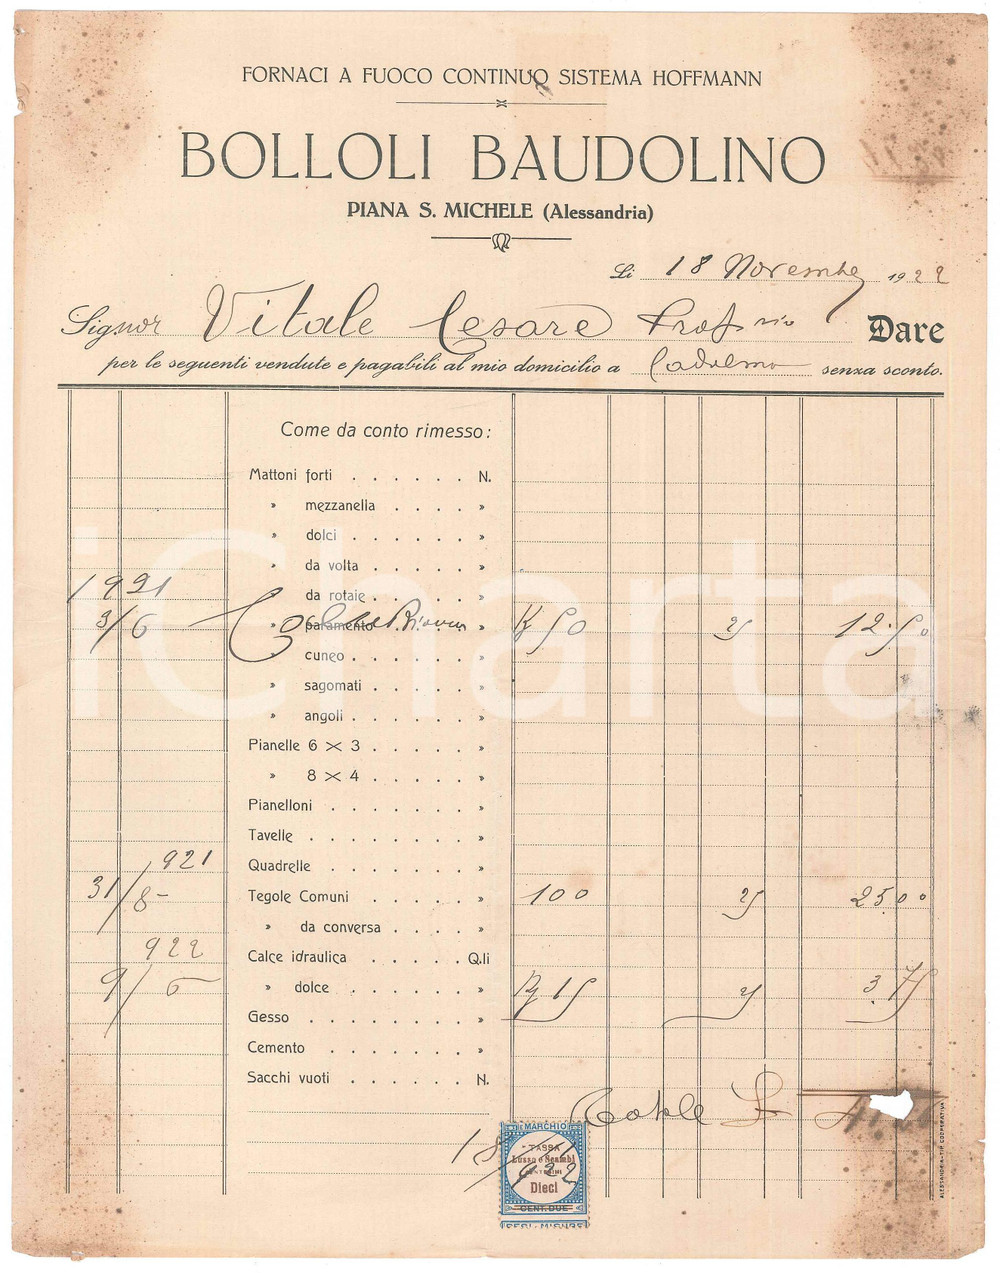 FORNACI A FUOCO CONTINUO SISTEMA HOFFMANN
BOLLOLI BAUDOLINO
PIANA S. MICHELE (Alessandria)
Li 18 Novembre 1922
Signor Vitale Cesare Dare
per le seguenti vendute e pagabili al mio domicilio a senza sconto.
Come da conto rimesso:
Mattoni forti . . . . . . N.
» mezzanella . . . . »
» dolci . . . . . . »
» da volta . . . . . »
1921
» da rotaie . . . . . »
3/6 » paramento » 50 12.50
» cuneo . . . . . . »
» sagomati . . . . . »
» angoli . . . . . . »
Pianelle 6 × 3 . . . . . »
» 8 × 4 . . . . . »
Pianelloni . . . . . . . »
Tavelle . . . . . . . . »
921
Quadrelle . . . . . . . »
31/8- Tegole Comuni . . . . . » 100 25.00
» da conversa . . . . »
922
Calce idraulica . . . . . Q.li
9/6 » dolce . . . . . . » 15 3.75
Gesso . . . . . . . . »
Cemento . . . . . . . »
Sacchi vuoti . . . . . . N.
Totale L
MARCHIO
TASSA
Lusso e Scambi
CENTESIMI
Dieci
CENT. DUE
18
922
ALESSANDRIA - TIP. COOPERATIVA
iCharta